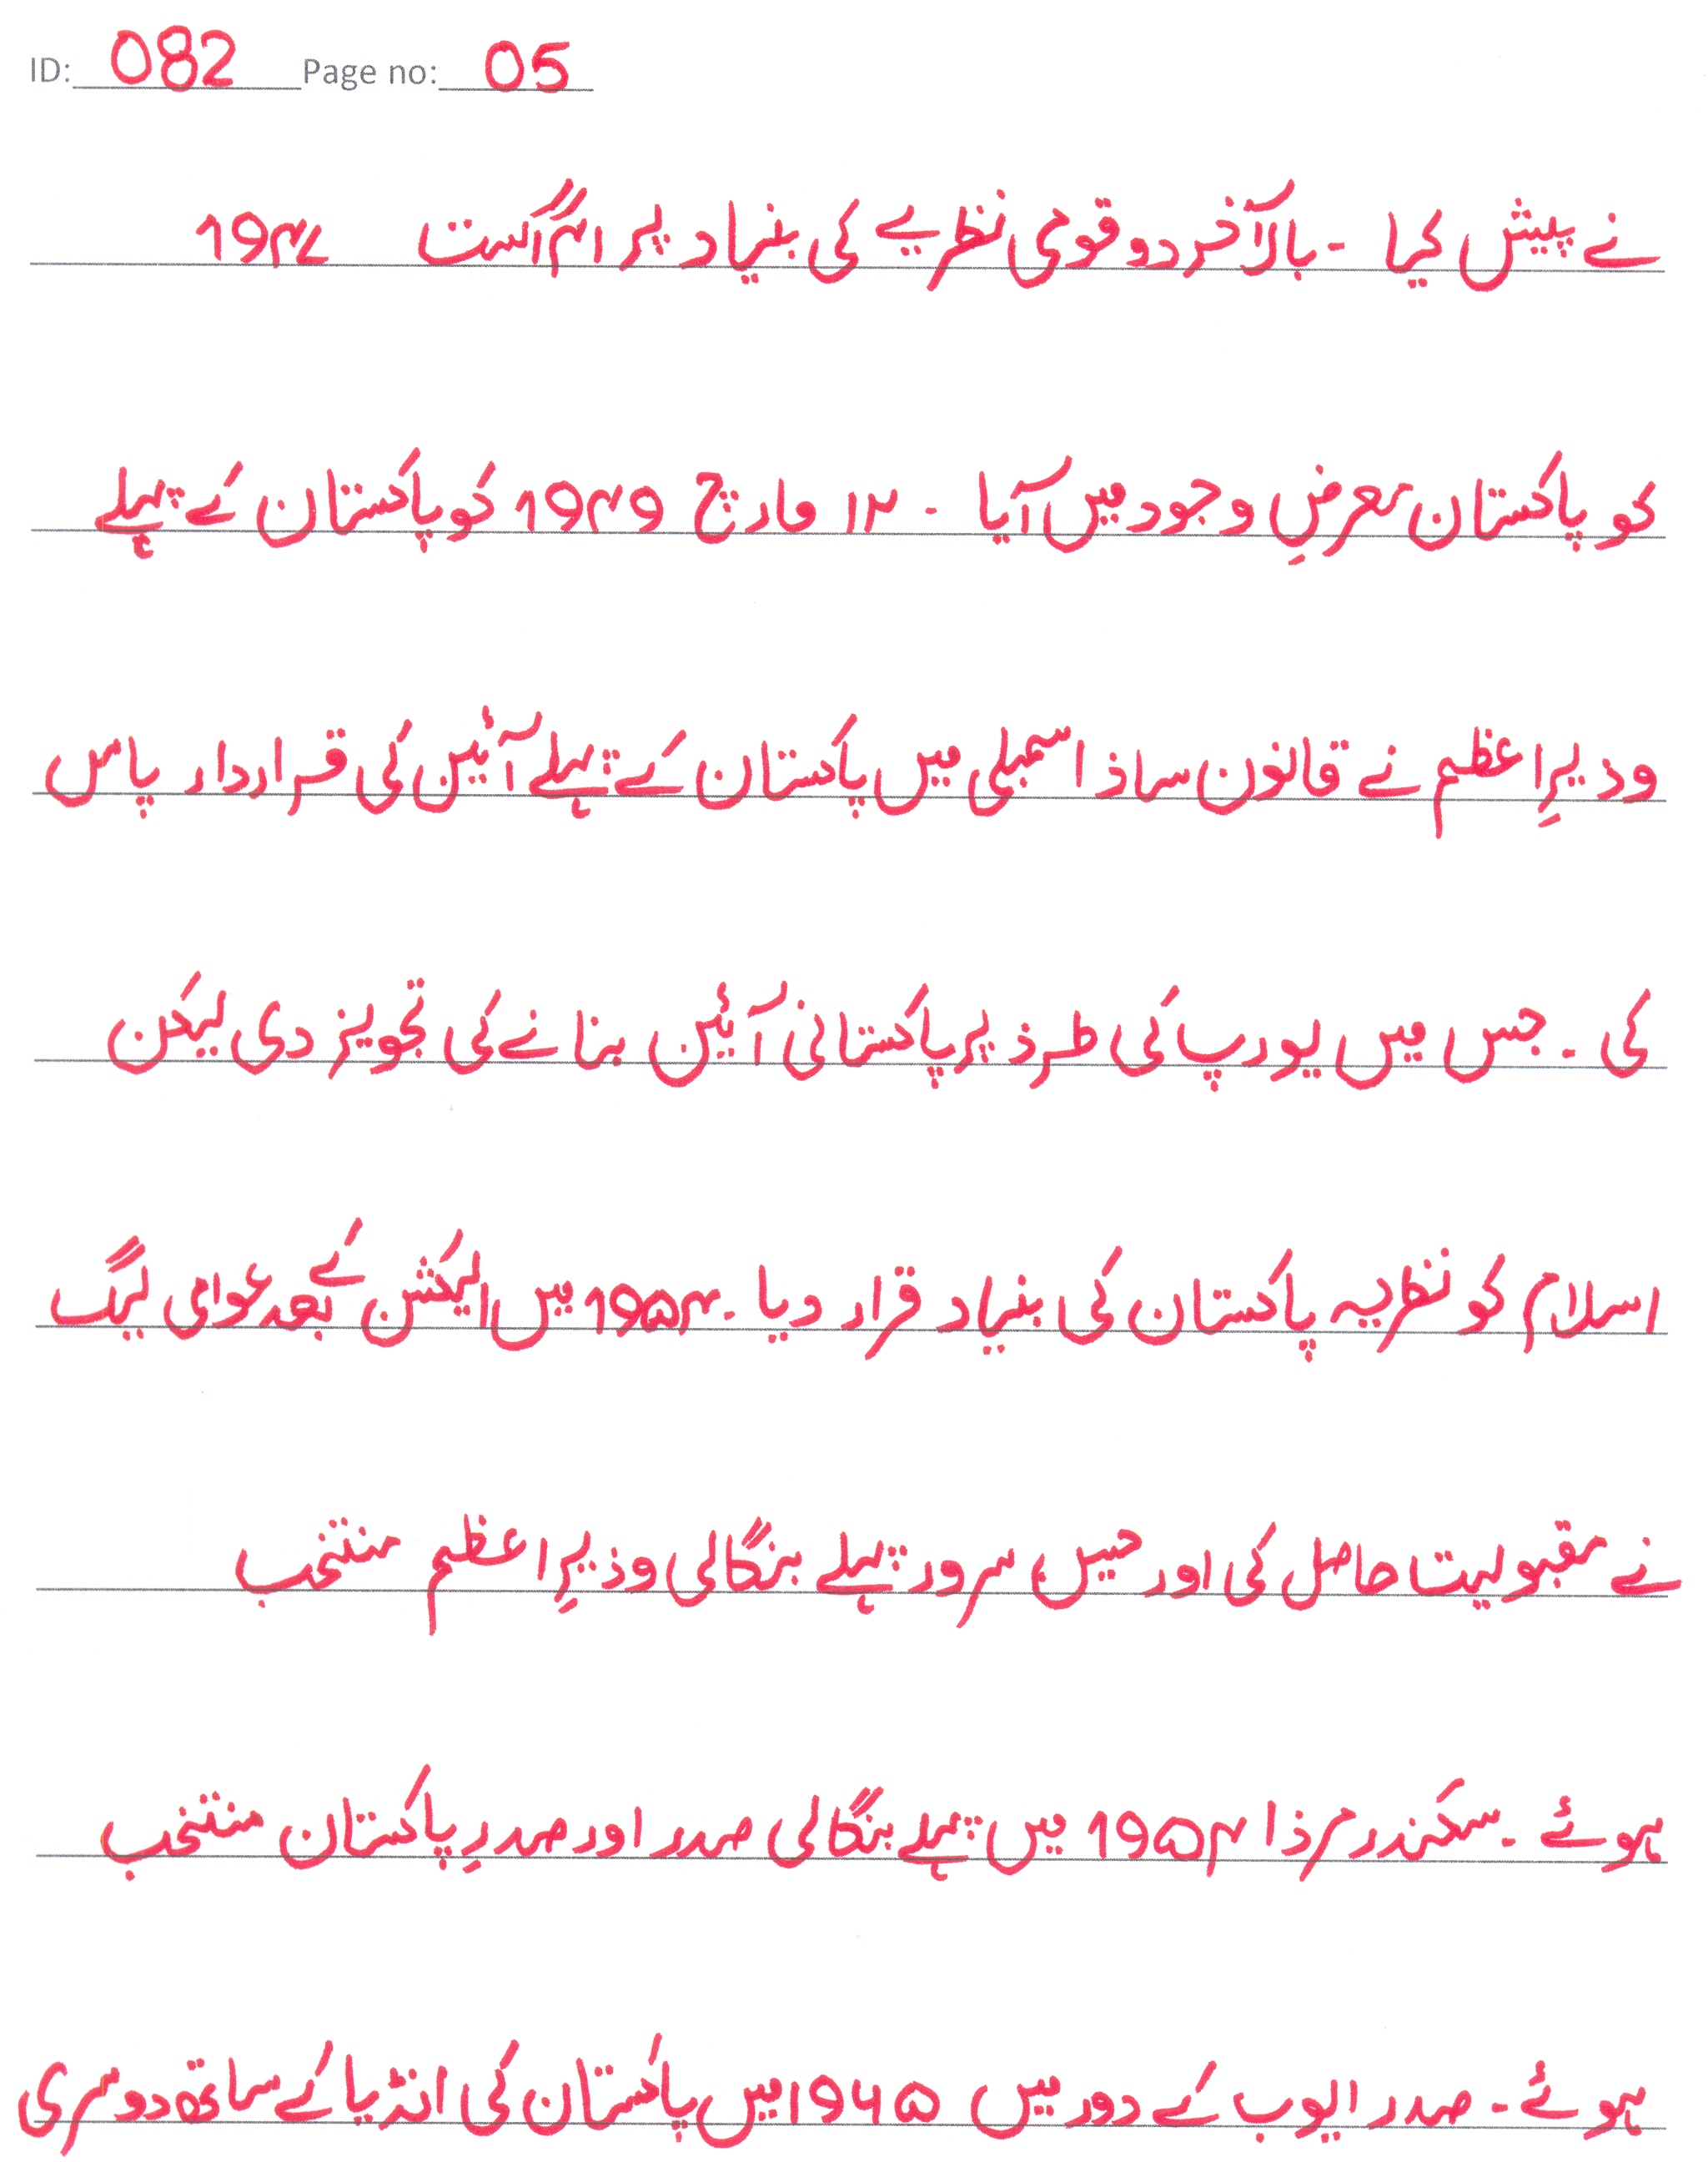 ID: 082 Page no: 05
نے پیش کیا ۔ بالآخر دو قومی نظریے کی بنیاد پر ۱۴ اگست ۱۹۴۷
کو پاکستان معرضِ وجود میں آیا ۔ ۱۲ مارچ ۱۹۴۹ کو پاکستان کے پہلے
وزیرِ اعظم نے قانون ساز اسمبلی میں پاکستان کے پہلے آئین کی قرارداد پاس
کی ۔ جس میں یورپ کی طرز پر پاکستانی آئین بنانے کی تجویز دی لیکن
اسلام کو نظریہ پاکستان کی بنیاد قرار دیا ۔ ۱۹۵۴ میں الیکشن کے بعد عوامی لیگ
نے مقبولیت حاصل کی اور حسین سرور پہلے بنگالی وزیرِ اعظم منتخب
ہوئے ۔ سکندر مرزا ۱۹۵۴ میں پہلے بنگالی صدر اور صدرِ پاکستان منتخب
ہوئے ۔ صدر ایوب کے دور میں ۱۹۶۵ میں پاکستان کی انڈیا کے ساتھ دوسری